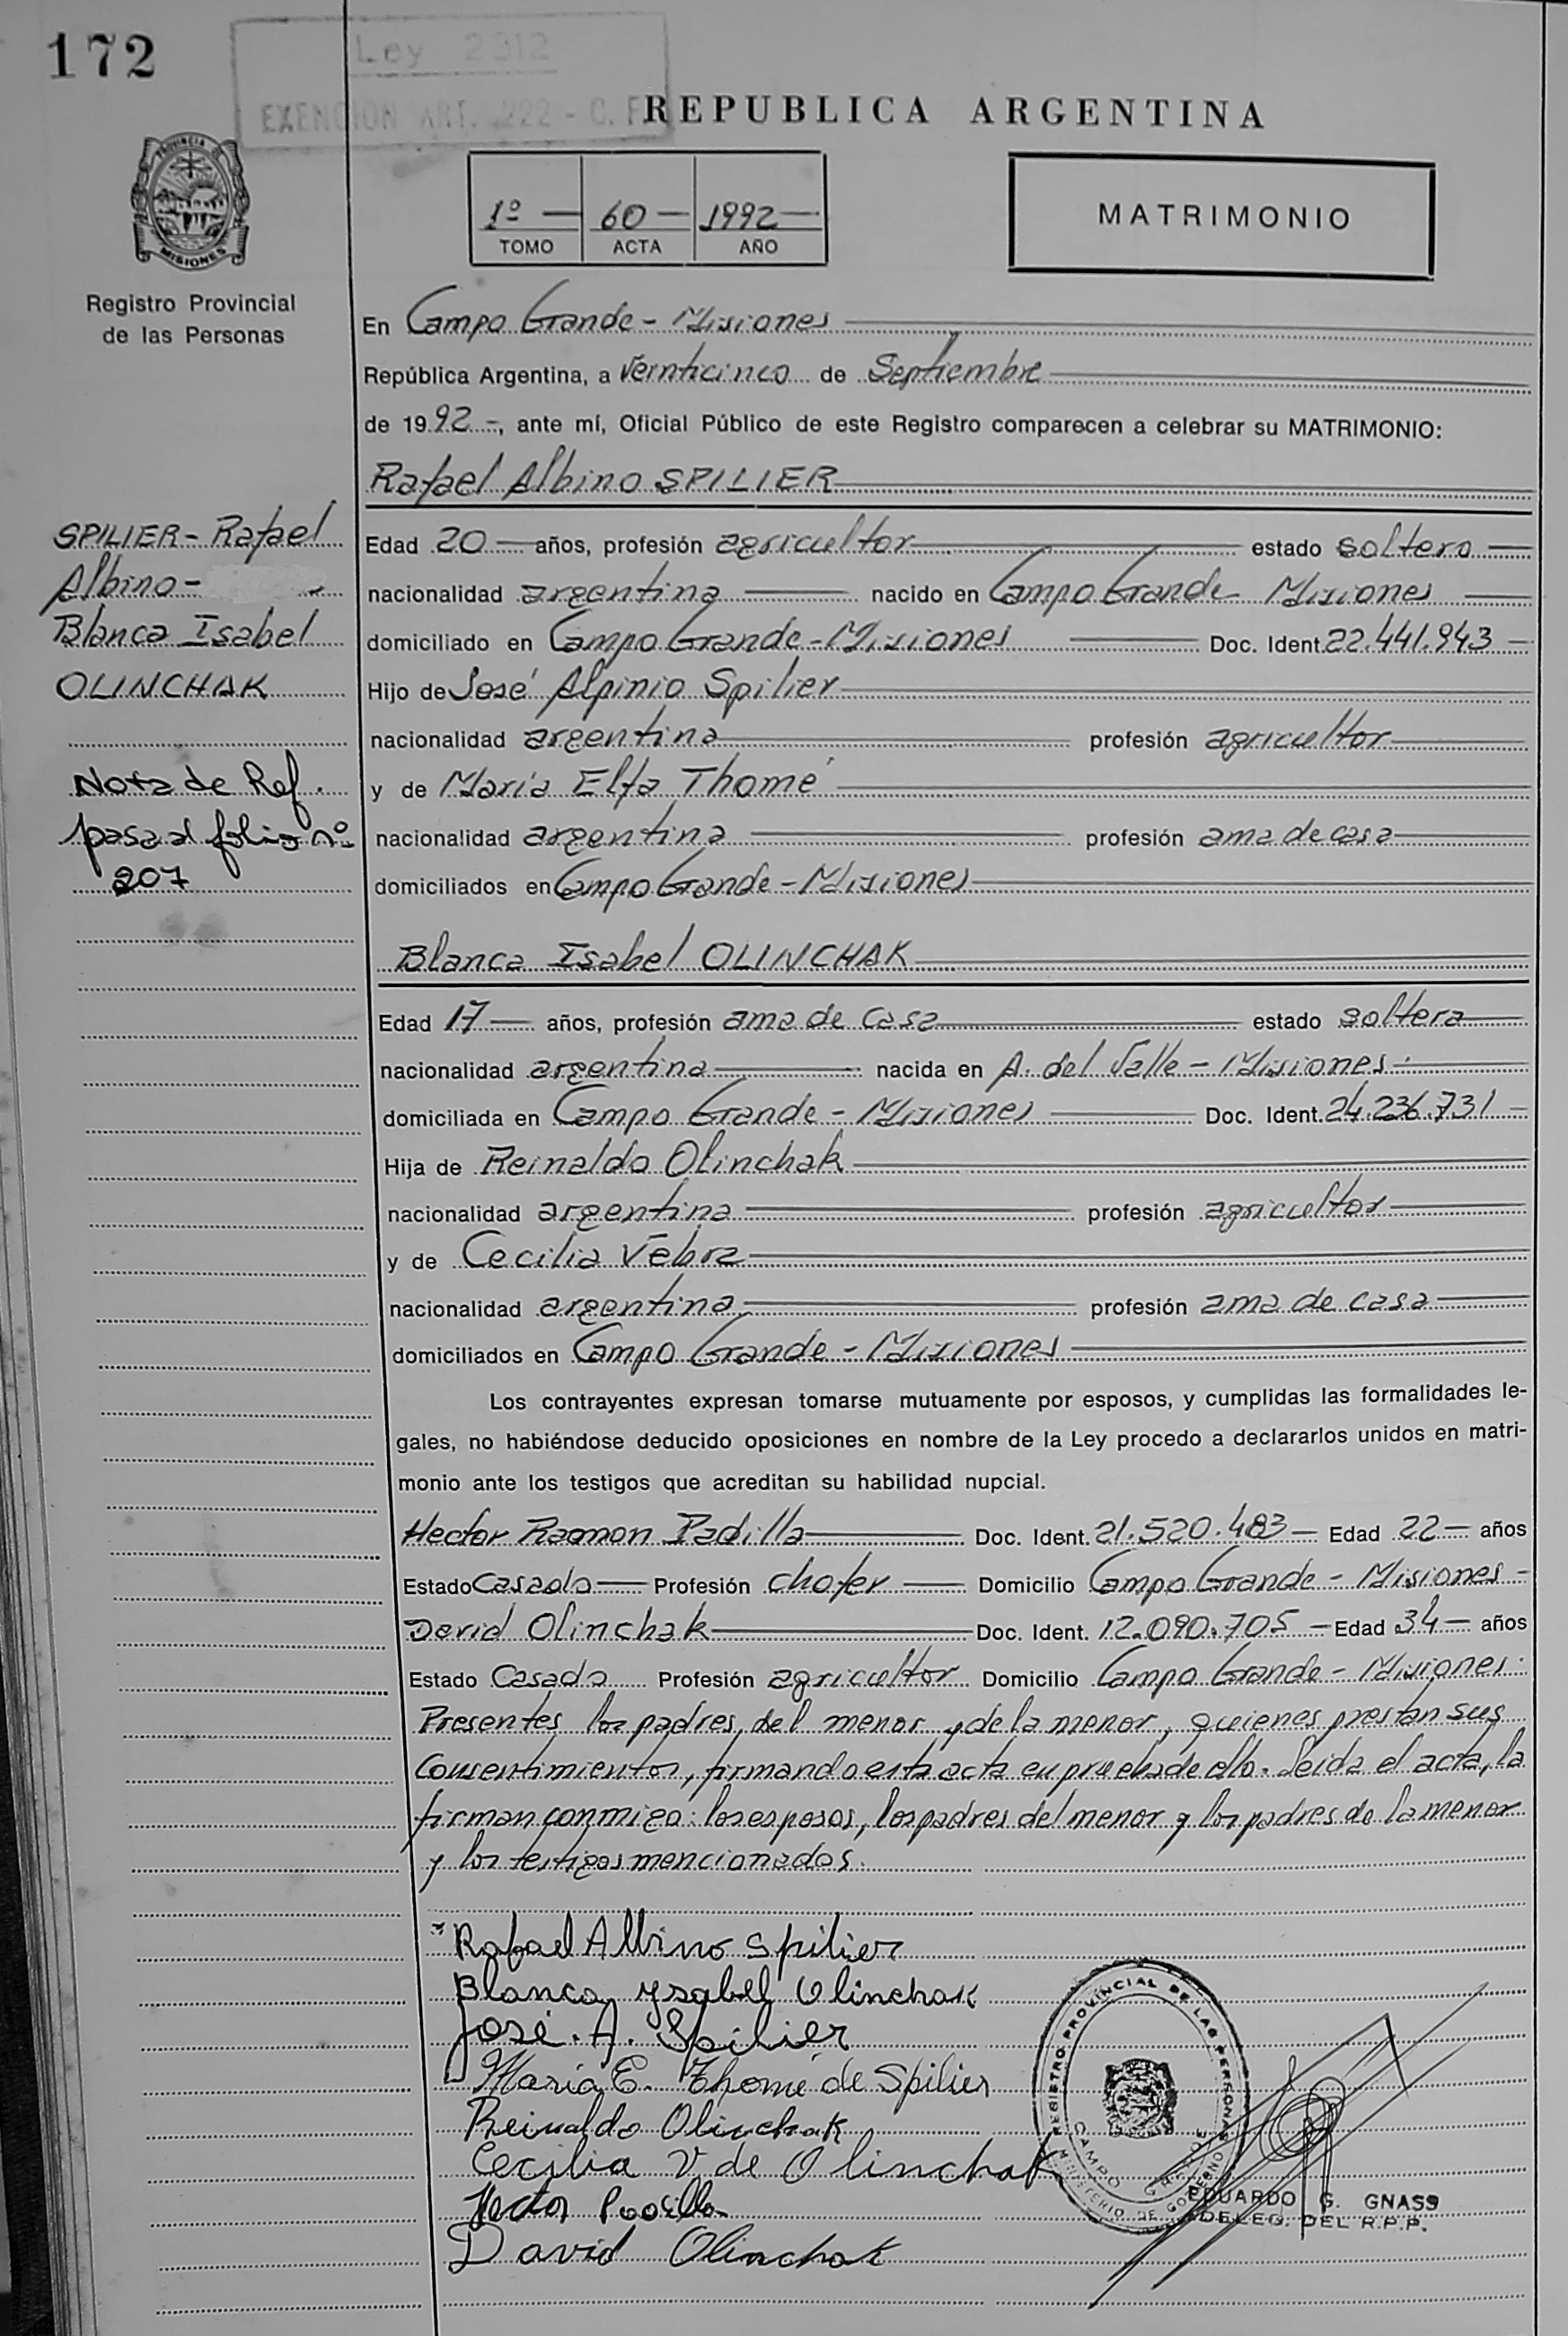 172
Ley 2312
EXENCION ART. 222 - C. F.
REPUBLICA ARGENTINA
PROVINCIA DE MISIONES
1º — 60 — 1992 —
TOMO ACTA AÑO
MATRIMONIO
Registro Provincial
de las Personas
En Campo Grande - Misiones
República Argentina, a Veinticinco de Septiembre
de 1992 -, ante mí, Oficial Público de este Registro comparecen a celebrar su MATRIMONIO:
Rafael Albino SPILIER
SPILIER - Rafael
Albino -
Blanca Isabel
OLINCHAK
Nota de Ref.
pasa al folio nº
207
Edad 20 — años, profesión agricultor estado soltero —
nacionalidad argentina — nacido en Campo Grande Misiones —
domiciliado en Campo Grande - Misiones — Doc. Ident. 22.441.943 —
Hijo de José Alpinio Spilier
nacionalidad argentina profesión agricultor
y de María Elfa Thomé
nacionalidad argentina profesión ama de casa
domiciliados en Campo Grande - Misiones
Blanca Isabel OLINCHAK
Edad 17 — años, profesión ama de casa estado soltera
nacionalidad argentina — nacida en A. del Valle - Misiones
domiciliada en Campo Grande - Misiones — Doc. Ident. 24.236.731 —
Hija de Reinaldo Olinchak
nacionalidad argentina profesión agricultor
y de Cecilia Vebra
nacionalidad argentina profesión ama de casa
domiciliados en Campo Grande - Misiones
Los contrayentes expresan tomarse mutuamente por esposos, y cumplidas las formalidades le-
gales, no habiéndose deducido oposiciones en nombre de la Ley procedo a declararlos unidos en matri-
monio ante los testigos que acreditan su habilidad nupcial.
Hector Ramon Padilla — Doc. Ident. 21.520.483 — Edad 22 — años
Estado Casado — Profesión chofer — Domicilio Campo Grande - Misiones -
David Olinchak — Doc. Ident. 12.090.705 — Edad 34 — años
Estado Casado Profesión agricultor Domicilio Campo Grande - Misiones
Presentes los padres del menor y de la menor, quienes prestan sus
Consentimientos, firmando esta acta en prueba de ello. Leída el acta, la
firman conmigo: los esposos, los padres del menor y los padres de la menor
y los testigos mencionados.
Rafael Albino Spilier
Blanca Ysabel Olinchak
José. A. Spilier
María E. Thomé de Spilier
Reinaldo Olinchak
Cecilia V de Olinchak
Hector Padilla
David Olinchak
REGISTRO PROVINCIAL DE LAS PERSONAS
CAMPO GRANDE
MINISTERIO DE GOBIERNO
EDUARDO G. GNASS
DELEG. DEL R.P.P.